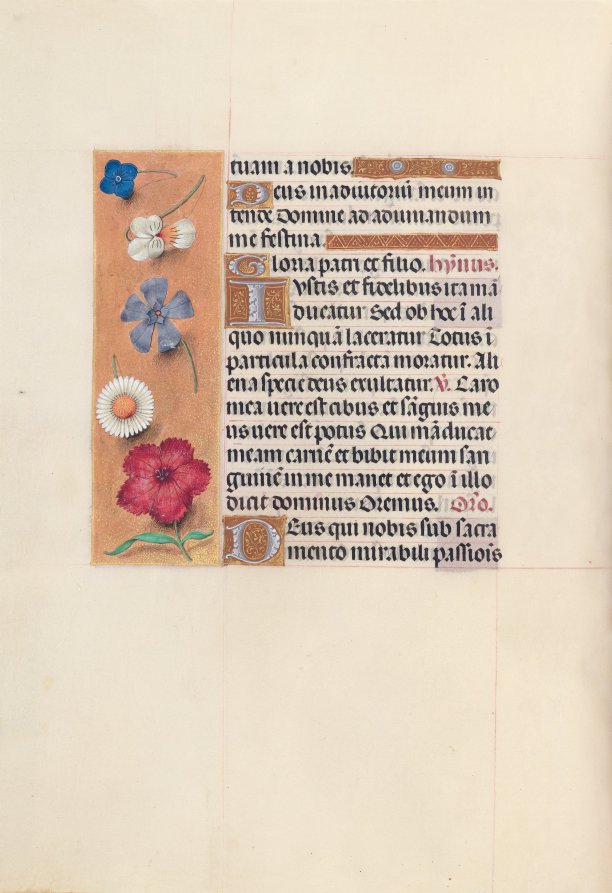 tuam a nobis.
Deus in adiutoriū meum in
tende Domine ad adiuuandum
me festina.
Gloria patri et filio. hȳnus.
Iustis et fidelibus ita mā
ducatur Sed ob hoc ī ali
quo nunquā laceratur Totus ī
particula confracta moratur. Ali
ena specie deus exultatur. V̄. Caro
mea uere est cibus et sāguis me
us uere est potus Qui māducat
meam carnē et bibit meum san
guinē in me manet et ego ī illo
dicit dominus Oremus. Oro.
DEus qui nobis sub sacra
mento mirabili passiois